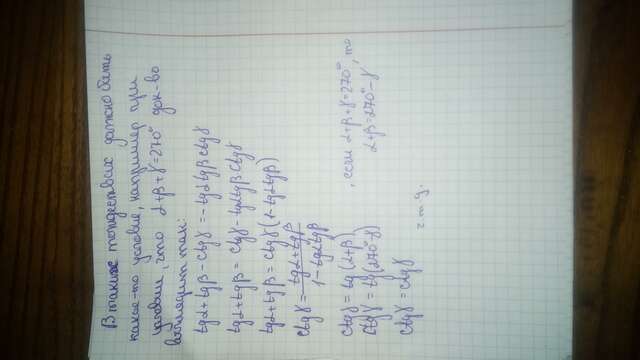 В таких тождествах должно быть
какое-то условие, например при
условии, что α+β+γ=270° док-во
выглядит так:
tgα+tgβ-ctgγ=-tgαtgβctgγ
tgα+tgβ=ctgγ-tgαtgβctgγ
tgα+tgβ=ctgγ(1-tgαtgβ)
ctgγ=(tgα+tgβ)/(1-tgαtgβ)
ctgγ=tg(α+β), если α+β+γ=270°, то
ctgγ=tg(270°-γ) α+β=270°-γ
ctgγ=ctgγ
ч.т.д.